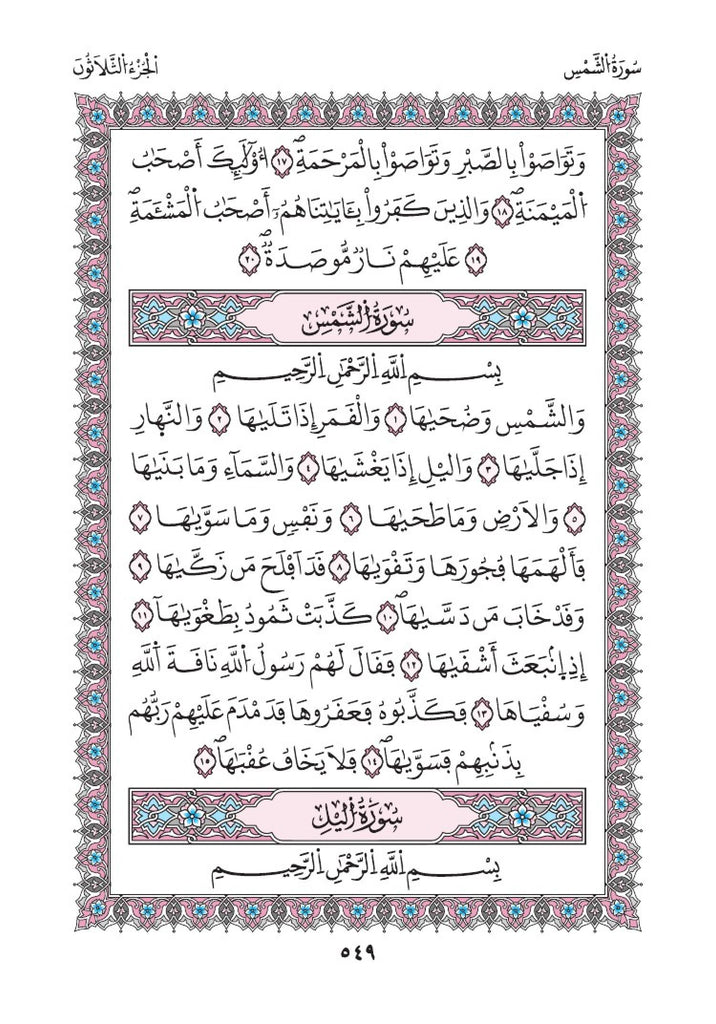 سُورَةُ الشَّمْسِ
الْجُزْءُ الثَّلَاثُونَ
وَتَوَاصَوْاْ بِالصَّبْرِ وَتَوَاصَوْاْ بِالْمَرْحَمَةِۖ ١٧ اُوْلَٰٓئِكَ أَصْحَٰبُ
اَ۬لْمَيْمَنَةِۖ ١٨ وَالذِينَ كَفَرُواْ بِـَٔايَٰتِنَا هُمُۥٓ أَصْحَٰبُ اُ۬لْمَشْـَٔمَةِۖ
١٩ عَلَيْهِمْ نَارٞ مُّوصَدَةٞۖ ٢٠
سُورَةُ الشَّمْسِ
بِسْمِ اِ۬للَّهِ اِ۬لرَّحْمَٰنِ اِ۬لرَّحِيمِ
وَالشَّمْسِ وَضُحَيٰهَا ١ وَالْقَمَرِ إِذَا تَلَيٰهَا ٢ وَالنَّهَارِ
إِذَا جَلَّيٰهَا ٣ وَاليْلِ إِذَا يَغْشَيٰهَا ٤ وَالسَّمَآءِ وَمَا بَنَيٰهَا
٥ وَالَارْضِ وَمَا طَحَيٰهَا ٦ وَنَفْسٖ وَمَا سَوَّيٰهَا ٧
فَأَلْهَمَهَا فُجُورَهَا وَتَقْوَيٰهَا ٨ قَدَ اَفْلَحَ مَن زَكَّيٰهَا ٩
وَقَدْ خَابَ مَن دَسَّيٰهَاۖ ١٠ كَذَّبَتْ ثَمُودُ بِطَغْوَيٰهَآ ١١
إِذِ اِ۪نۢبَعَثَ أَشْقَيٰهَا ١٢ فَقَالَ لَهُمْ رَسُولُ اُ۬للَّهِ نَاقَةَ اَ۬للَّهِ
وَسُقْيَٰهَا ١٣ فَكَذَّبُوهُ فَعَقَرُوهَا فَدَمْدَمَ عَلَيْهِمْ رَبُّهُم
بِذَنۢبِهِمْ فَسَوَّيٰهَاۖ ١٤ فَلَا يَخَافُ عُقْبَٰهَاۖ ١٥
سُورَةُ اليْلِ
بِسْمِ اِ۬للَّهِ اِ۬لرَّحْمَٰنِ اِ۬لرَّحِيمِ
٥٤٩